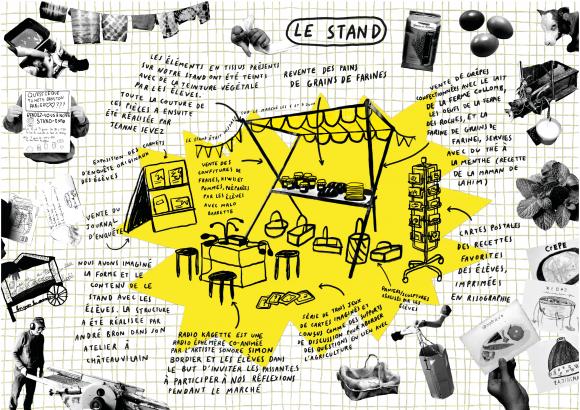 LE STAND
LES ÉLÉMENTS EN TISSUS PRÉSENTS
SUR NOTRE STAND ONT ÉTÉ TEINTS
AVEC DE LA TEINTURE VÉGÉTALE
PAR LES ÉLÈVES.
TOUTE LA COUTURE DE
CES PIÈCES A ENSUITE
ÉTÉ RÉALISÉE PAR
JEANNE JEVEZ
REVENTE DES PAINS
DE GRAINS DE FARINES
VENTE DE CRÊPES
CONFECTIONNÉES AVEC LE LAIT
DE LA FERME COULOMB,
LES OEUFS DE LA FERME
DES ROCHES, ET LA
FARINE DE GRAINS DE
FARINE, SERVIES
AVEC DU THÉ À
LA MENTHE (RECETTE
DE LA MAMAN DE
LAHIM)
EXPOSITION DES CARNETS
D'ENQUÊTE ORIGINAUX
DES ÉLÈVES
VENTE DES
CONFITURES DE
FRAISES, KIWIS ET
POMMES, PRÉPARÉES
PAR LES ÉLÈVES
AVEC MALO
VENTE DU
JOURNAL
D'ENQUÊTE
CARTES POSTALES
DES RECETTES
FAVORITES
DES ÉLÈVES,
IMPRIMÉES
EN RISOGRAPHIE
NOUS AVONS IMAGINÉ
LA FORME ET LE
CONTENU DE LE
STAND AVEC LES
ÉLÈVES. LA STRUCTURE
A ÉTÉ RÉALISÉE PAR
ANDRÉ BRON DANS SON
ATELIER À
CHÂTEAUVILAIN
PANIERS/SCULPTURES
RÉALISÉS PAR LES
ÉLÈVES
SÉRIE DE TROIS JEUX
DE CARTES IMAGINÉS ET
CONÇUS COMME DES SUPPORTS
DE DISCUSSION POUR ABORDER
DES QUESTIONS EN LIEN AVEC
L'AGRICULTURE
RADIO KAGETTE EST UNE
RADIO ÉPHÉMÈRE CO-ANIMÉE
PAR L'ARTISTE SONORE SIMON
BORDIER ET LES ÉLÈVES DANS
LE BUT D'INVITER LES PASSANT.ES
À PARTICIPER À NOS RÉFLEXIONS
PENDANT LE MARCHÉ
CRÊPE